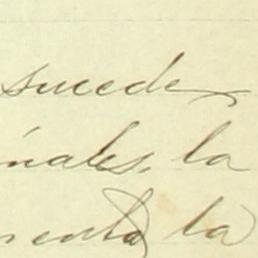 sucede
nales, la
mento la